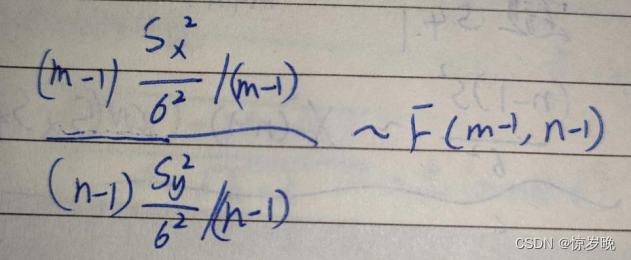 (m-1) Sx²/6² /(m-1)
(n-1) Sy²/6² /(n-1)
~ F(m-1, n-1)
CSDN @惊岁晚